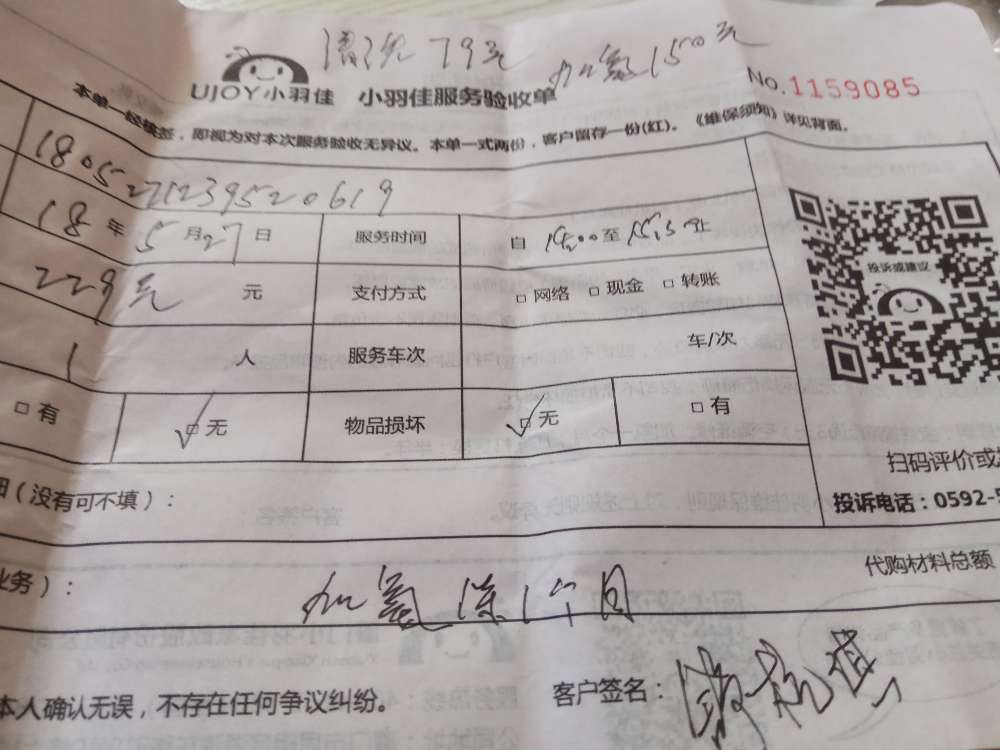 清洗79元 加氟150元
UJOY小羽佳 小羽佳服务验收单 No.1159085
本单一经核签，即视为对本次服务验收无异议。本单一式两份，客户留存一份(红)。《维保须知》详见背面。
1805271239520619
18年5月27日 服务时间 自14:00至15:50止
229元 元 支付方式 □网络 □现金 □转账
投诉或建议
1 人 服务车次 车/次
□有 ☑无 物品损坏 ☑无 □有
扫码评价或
(没有可不填)：
投诉电话：0592-5
代购材料总额
业务)：
加氟保1个月
本人确认无误，不存在任何争议纠纷。 客户签名：